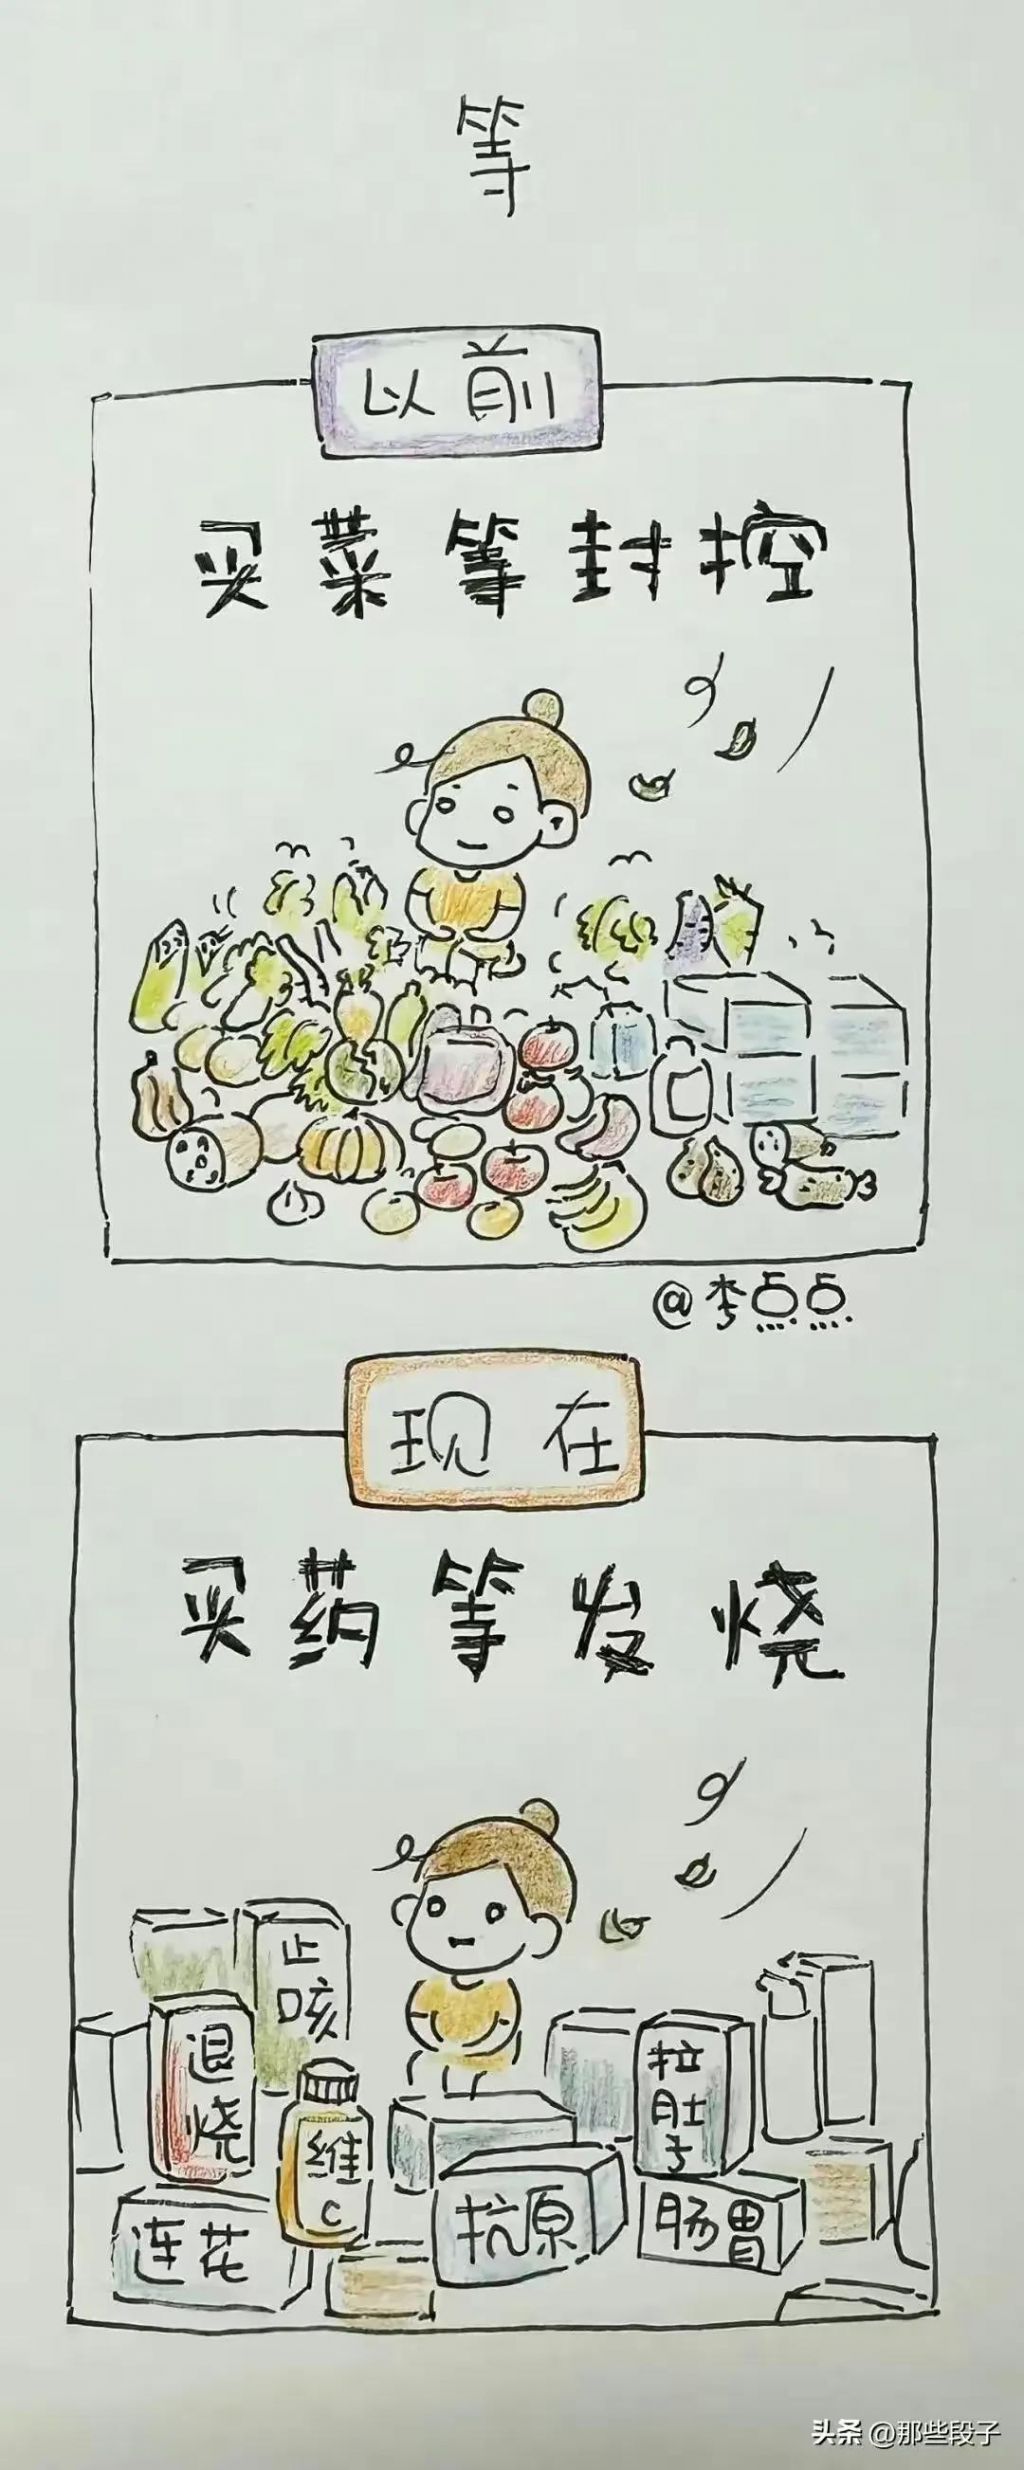 等
以前
买菜等封控
@李点点
现在
买药等发烧
止咳
退烧
维C
连花
抗原
拉肚子
肠胃
头条 @那些段子